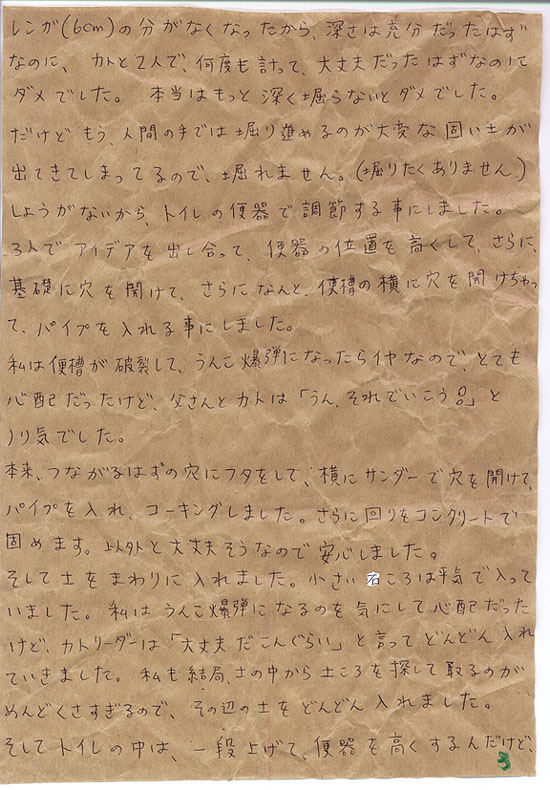 レンガ(6cm)の分がなくなったから、深さは充分だったはず
なのに、カトと2人で、何度も計って、大丈夫だったはずなのに
ダメでした。 本当はもっと深く堀らないとダメでした。
だけどもう、人間の手では堀り進めるのが大変な固い土が
出てきてしまってるので、堀れません。(堀りたくありません。)
しょうがないから、トイレの便器で調節する事にしました。
3人でアイデアを出し合って、便器の位置を高くして、さらに
基礎に穴を開けて、さらになんと、便槽の横に穴を開けちゃっ
て、パイプを入れる事にしました。
私は便槽が破裂して、うんこ爆弾になったらイヤなので、とても
心配だったけど、父さんとカトは「うん、それでいこう!」と
ノリ気でした。
本来、つながるはずの穴にフタをして、横にサンダーで穴を開けて、
パイプを入れ、コーキングしました。さらに回りをコンクリートで
固めます。以外と大丈夫そうなので安心しました。
そして土をまわりに入れました。小さい石ころは平気で入って
いました。私はうんこ爆弾になるのを気にして心配だった
けど、カトリーダーは「大丈夫だこんぐらい」と言ってどんどん入れ
ていきました。私も結局、土の中から土ころを探して取るのが
めんどくさすぎるので、その辺の土をどんどん入れました。
そしてトイレの中は、一段上げて、便器を高くするんだけど、
3